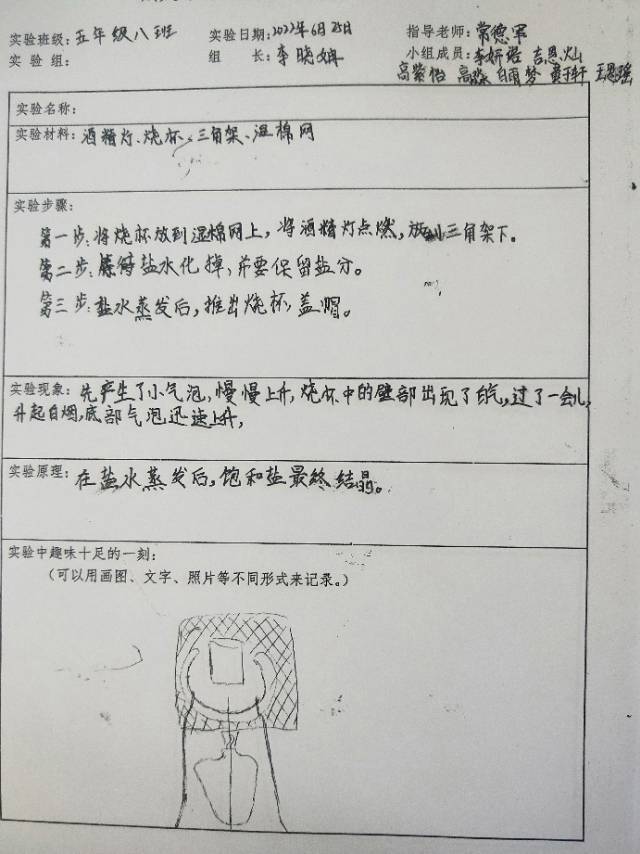 实验班级：五年级八班 实验日期：2022年6月25日 指导老师：常德军
实 验 组： 组 长：李晓娟 小组成员：李妍 吉恩灿
高紫怡 高 白雨梦 轩 王恩瑶
实验名称：
实验材料：酒精灯、烧杯、三角架、湿棉网
实验步骤：
第一步：将烧杯放到湿棉网上，将酒精灯点燃，放到三角架下。
第二步： 盐水化掉，并要保留盐分。
第三步：盐水蒸发后，推出烧杯，盖帽。
实验现象：先产生了小气泡，慢慢上升，烧杯中的壁部出现了白气，过了一会儿，
升起白烟，底部气泡迅速上升，
实验原理：在盐水蒸发后，饱和盐最终结晶。
实验中趣味十足的一刻：
（可以用画图、文字、照片等不同形式来记录。）